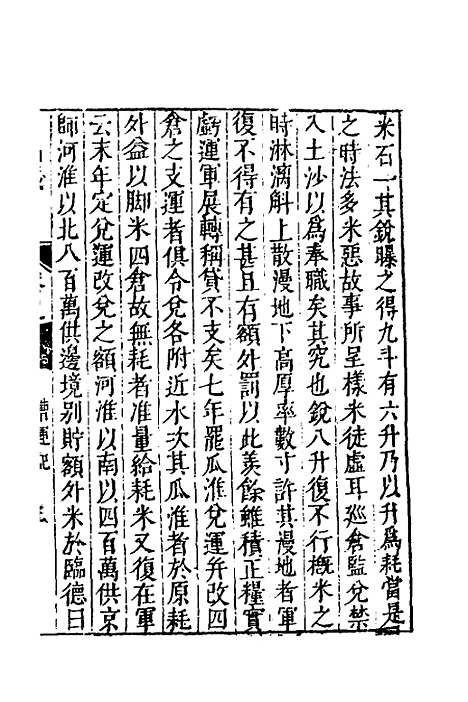 米石一其銳曝之得九斗有六升乃以升爲耗當是
之時法多米惡故事所呈樣米徒虛耳廵倉監兌禁
入土沙以爲奉職矣其究也銳八升復不行概米之
時淋漓斛上散漫地下高厚率數寸許其漫地者軍
復不得有之甚且有額外罰以此羨餘雖積正糧實
虧運軍展轉稱貸不支矣七年罷瓜淮兌運弁改四
倉之支運者俱令兌各附近水次其瓜淮者於原耗
外益以脚米四倉故無耗者准量給耗米又復在軍
云末年定兌運改兌之額河淮以南以四百萬供京
師河淮以北八百萬供邊境別貯額外米於臨德曰
漕運說